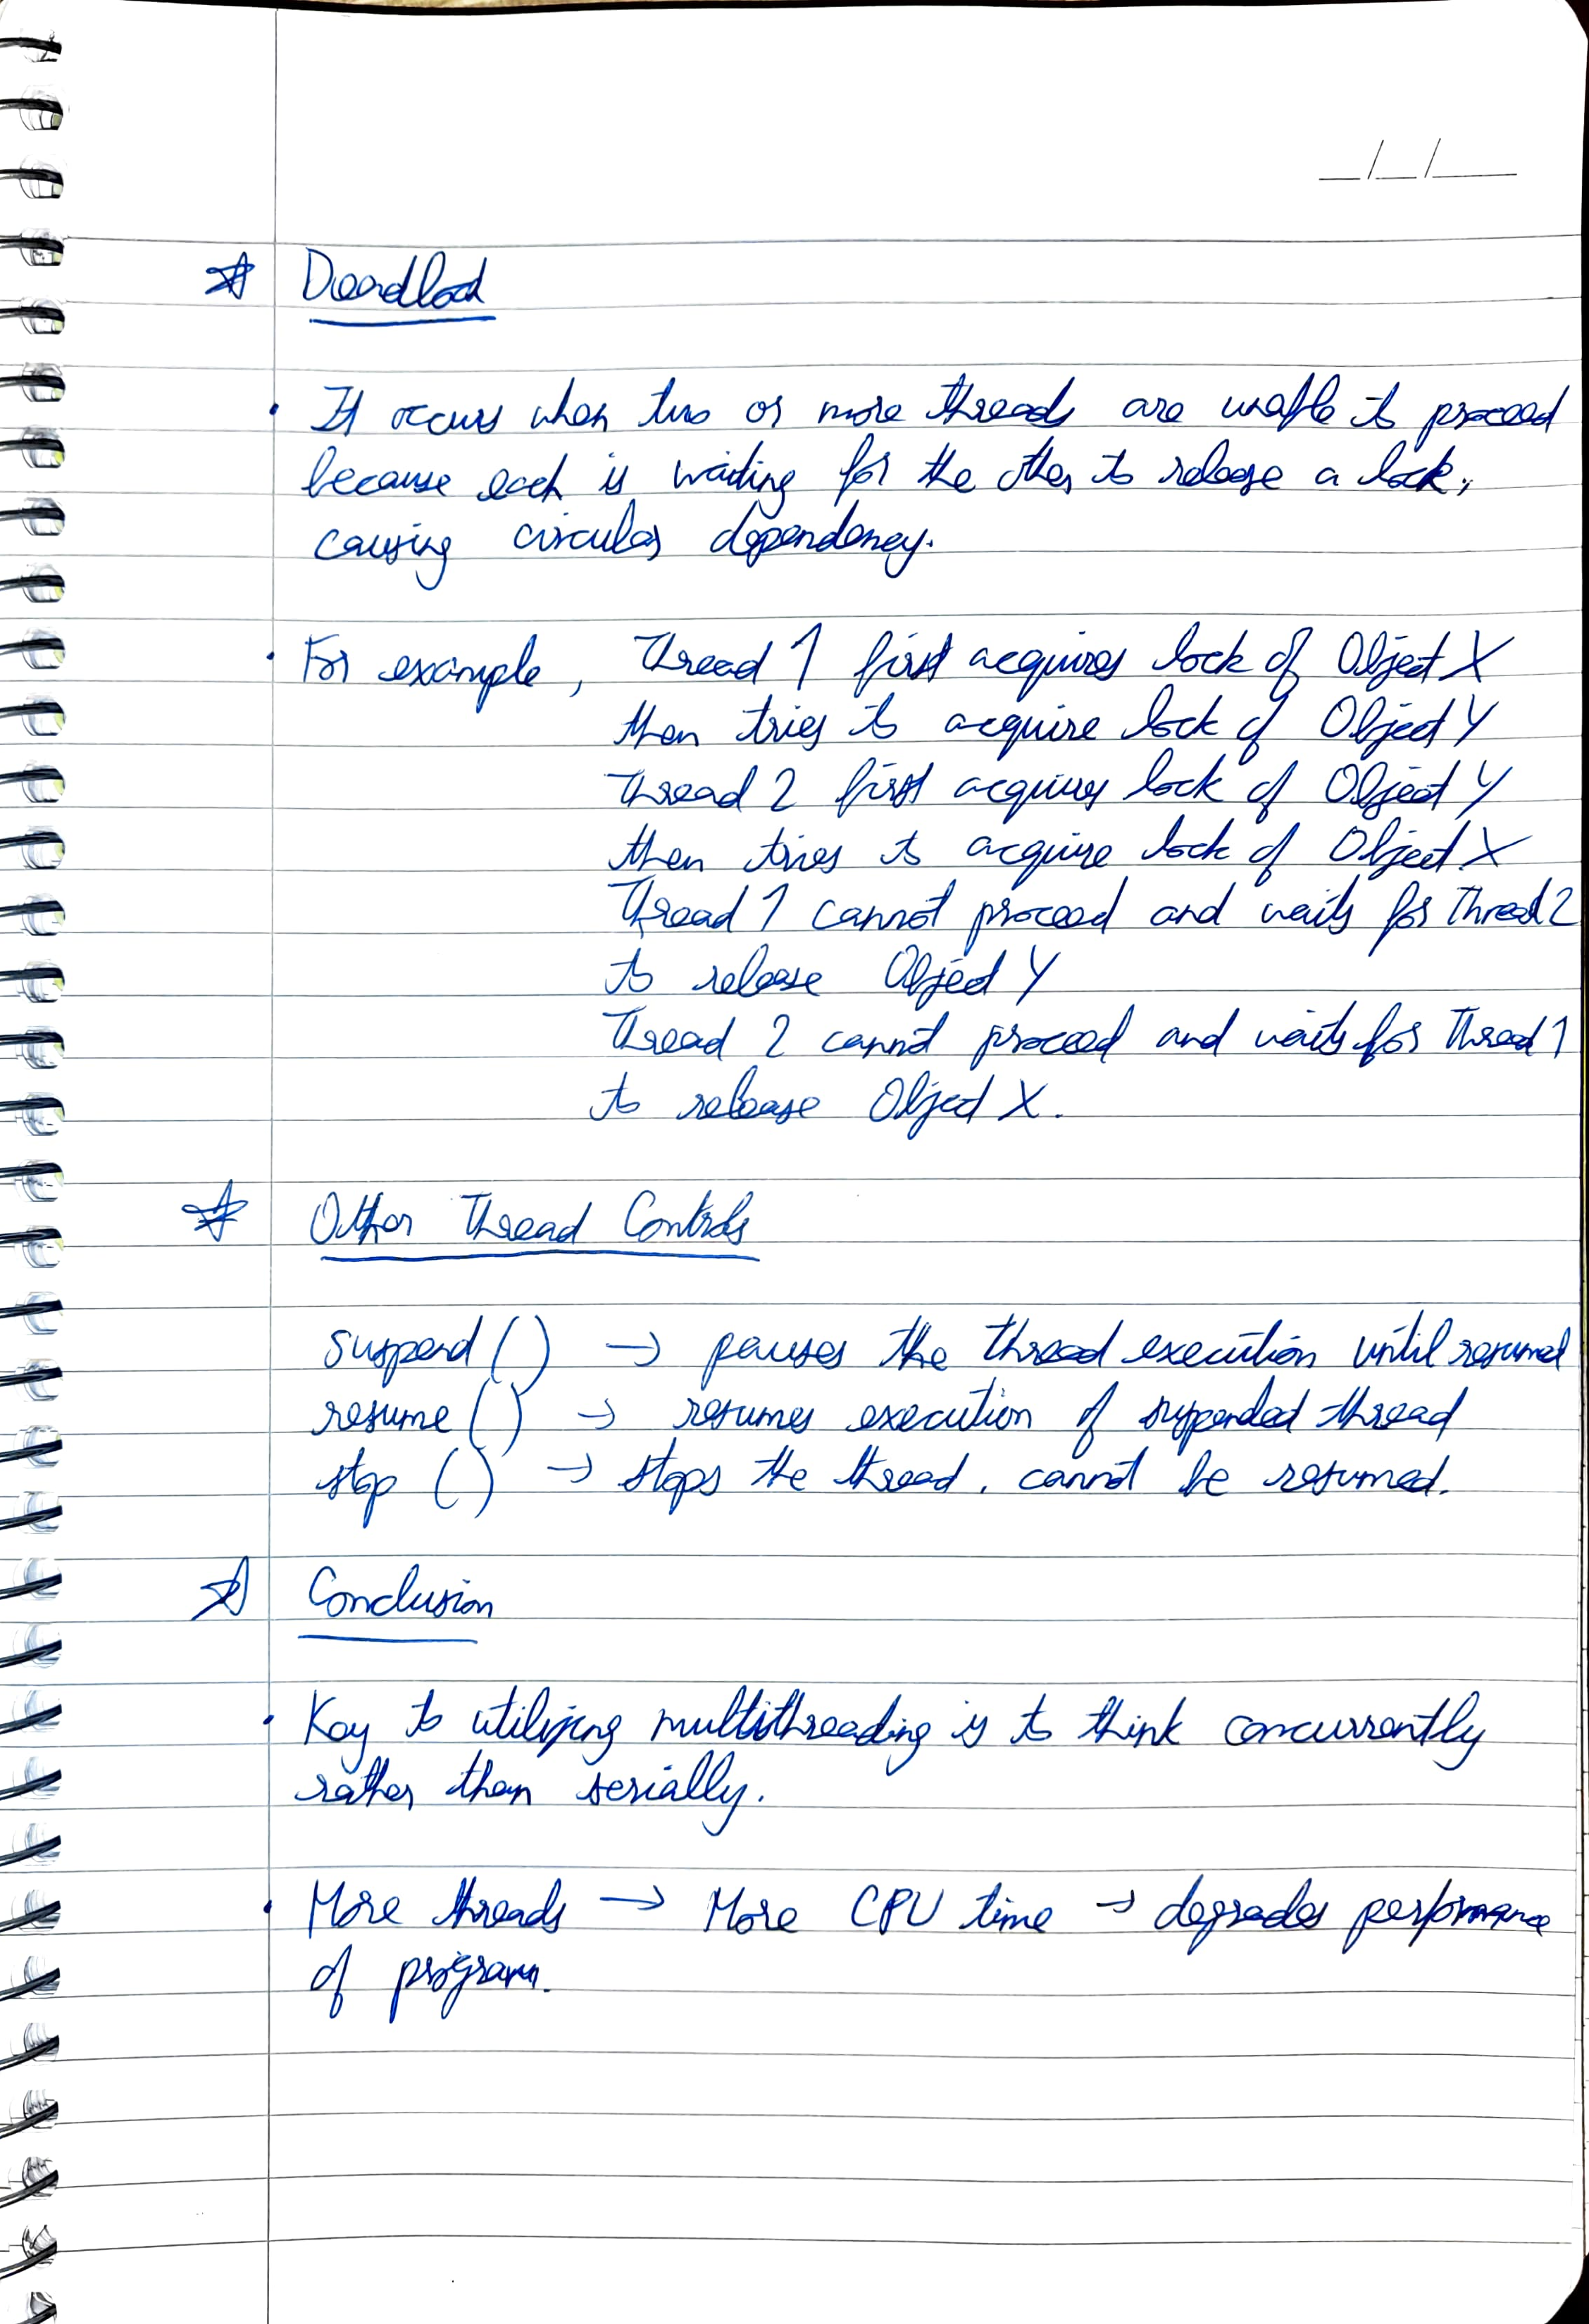 _/_/__
☆ Deadlock
• It occurs when two or more threads are unable to proceed
because each is waiting for the other to release a lock,
causing circular dependency.
• For example, Thread 1 first acquires lock of Object X
then tries to acquire lock of Object Y
Thread 2 first acquires lock of Object Y
then tries to acquire lock of Object X
Thread 1 cannot proceed and waits for Thread 2
to release Object Y
Thread 2 cannot proceed and waits for Thread 1
to release Object X.
☆ Other Thread Controls
suspend () → pauses the thread execution until resumed
resume () → resumes execution of suspended thread
stop () → stops the thread. cannot be resumed.
☆ Conclusion
• Key to utilizing multithreading is to think concurrently
rather than serially.
• More threads → More CPU time → degrades performance
of program.